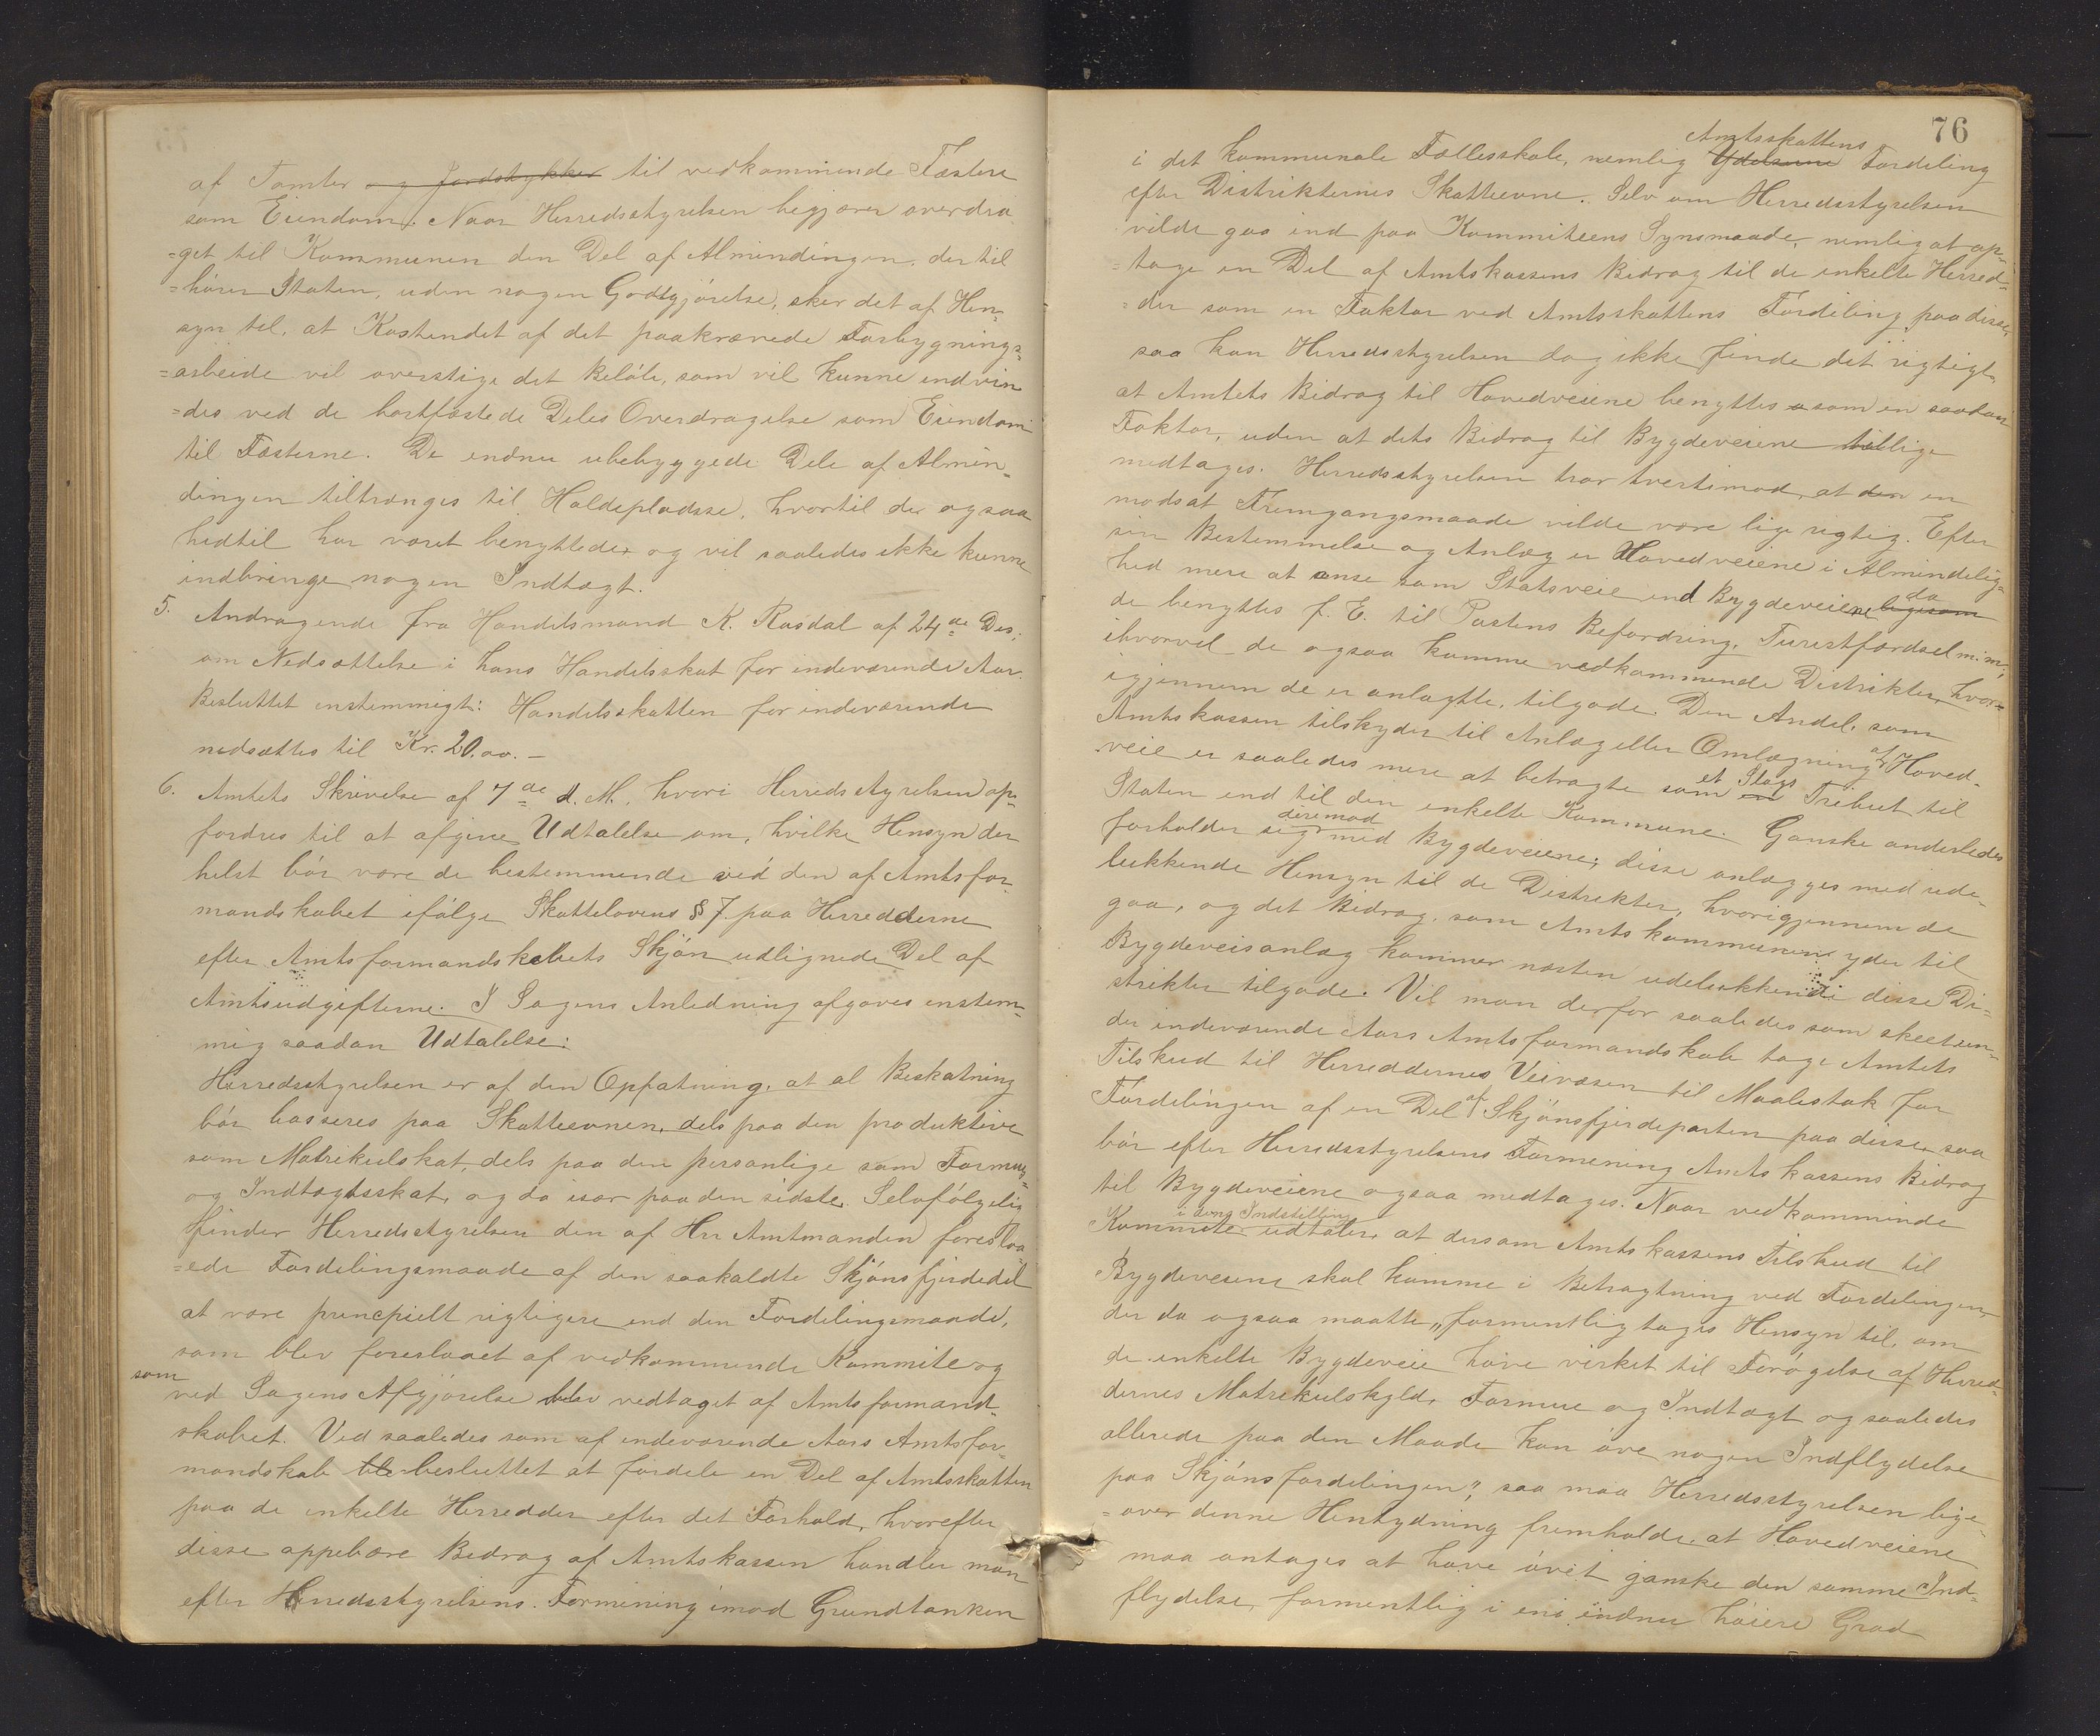 af Tomter og Jordstykker til vedkommende Fæstere
som Eiendom. Naar Herredsstyrelsen begjærer overdra
=get til Kommunen den Del af Almindingen, der til
=hører Staten, uden nogen Godtgjørelse, sker det af Hen-
syn til, at Kostendet af det paakrævede Forbygnings=
=arbeide vil overstige det Beløb, som vil kunne indvin
=des ved de bortfæstede Deles Overdragelse som Eiendom
til Fæsterne. De endnu ubebyggede Dele af Almin-
dingen tiltrænges til Holdepladse, hvortil de ogsaa
hidtil har været benyttede og vil saaledes ikke kunne
indbringe nogen Indtægt.
5. Andragende fra Handelsmand K. Rasdal af 24de Des.
om Nedsættelse i hans Handelsskat for indeværende Aar.
Besluttet enstemmigt: Handelsskatten for indeværende
nedsættes til Kr. 20.00.-
6. Amtets Skrivelse af 7de d. M. hvori Herredsstyrelsen op-
fordres til at afgive Udtalelse om, hvilke Hensyn der
helst bør være de bestemmende ved den af Amtsfor-
mandskabet ifølge Skattelovens § 7 paa Herredderne
efter Amtsformandskabets Skjøn udlignede Del af
Amtsudgifterne. I Sagens Anledning afgaves enstem-
mig saadan Udtalelse:
Herredsstyrelsen er af den Opfatning, at al Beskatning
bør basseres paa Skatteevnen, dels paa den produktive
som Matrikulskat, dels paa den personlige som Formues=
og Indtægtsskat, og da især paa den sidste. Selvfølgelig
finder Herredsstyrelsen den af Hr Amtmanden foreslaa
=ede Fordelingsmaade af den saakaldte Skjønsfjerdedel
at være princpielt rigtigere end den Fordelingsmaade,
som blev foreslaaet af vedkommende Kommite og
som
ved Sagens Afgjørelse blev vedtaget af Amtsformand-
skabet. Ved saaledes som af indeværende Aars Amtsfor-
mandskab blev besluttet at fordele en Del af Amtsskatten
paa de enkelte Herredder efter det Forhold, hvorefter
disse oppebære Bidrag af Amtskassen handler man
efter Herredsstyrelsens Formening imod Grundtanken
76
Amtsskattens
i det kommunale Fællesskab, nemlig Ydelserne Fordeling
efter Distrikternes Skatteevne. Selv om Herredsstyrelsen
vilde gaa ind paa Kommiteens Synsmaade, nemlig at op-
=tage en Del af Amtskassens Bidrag til de enkelte Herred-
=der som en Faktor ved Amtsskattens Fordeling paa disse,
saa kan Herredsstyrelsen dog ikke finde det rigtigt,
at Amtets Bidrag til Hovedveiene benyttes som en saadan
Faktor, uden at dets Bidrag til Bygdeveiene tillige
medtages. Herredsstyrelsen tror tvertimod, at den en
modsat Fremgangsmaade vilde være lige rigtig. Efter
sin Bestemmelse og Anlæg er Hovedveiene i Almindelig-
hed mere at anse som Statsveie end Bygdeveiene ligesom
da
de benyttes f. E. til Postens Befordring, Turistfærdsel m. m.,
ihvorvel de ogsaa komme vedkommende Distrikter, hvor=
igjennem de er anlagte, tilgode. Den Andel, som
Amtskassen tilskyder til Anlæg eller Omlægning af Hoved-
veie er saaledes mere at betragte som en et Slags Tribut til
Staten end til den enkelte Kommune. Ganske anderledes
forholder sig derimod med Bygdeveiene; disse anlægges med ude-
lukkende Hensyn til de Distrikter, hvorigjennem de
gaa, og det Bidrag, som Amtskommunen yder til
Bygdeveisanlæg kommer næsten udelukkende disse Di-
strikter tilgode. Vil man derfor saaledes som skeet un-
der indeværende Aars Amtsformandskab tage Amtets
Tilskud til Herreddernes Veivæsen til Maalestok for
Fordelingen af en Del af Skjønsfjerdeparten paa disse, saa
bør efter Herredsstyrelsens Formening Amtskassens Bidrag
til Bygdeveiene ogsaa medtages. Naar vedkommende
i dens Indstilling
Kommite udtaler, at dersom Amtskassens Tilskud til
Bygdeveiene skal komme i Betragtning ved Fordelingen,
der da ogsaa maatte „formentlig tages Hensyn til, om
de enkelte Bygdeveie have virket til Forøgelse af Herred-
dernes Matrikulskyld, Formue og Indtægt og saaledes
allerede paa den Maade kan øve nogen Indflydelse
paa Skjønsfordelingen", saa maa Herredsstyrelsen lige-
=over denne Hentydning fremholde, at Hovedveiene
maa antages at have øvet ganske den samme Ind-
flydelse, formentlig i end endnu høiere Grad